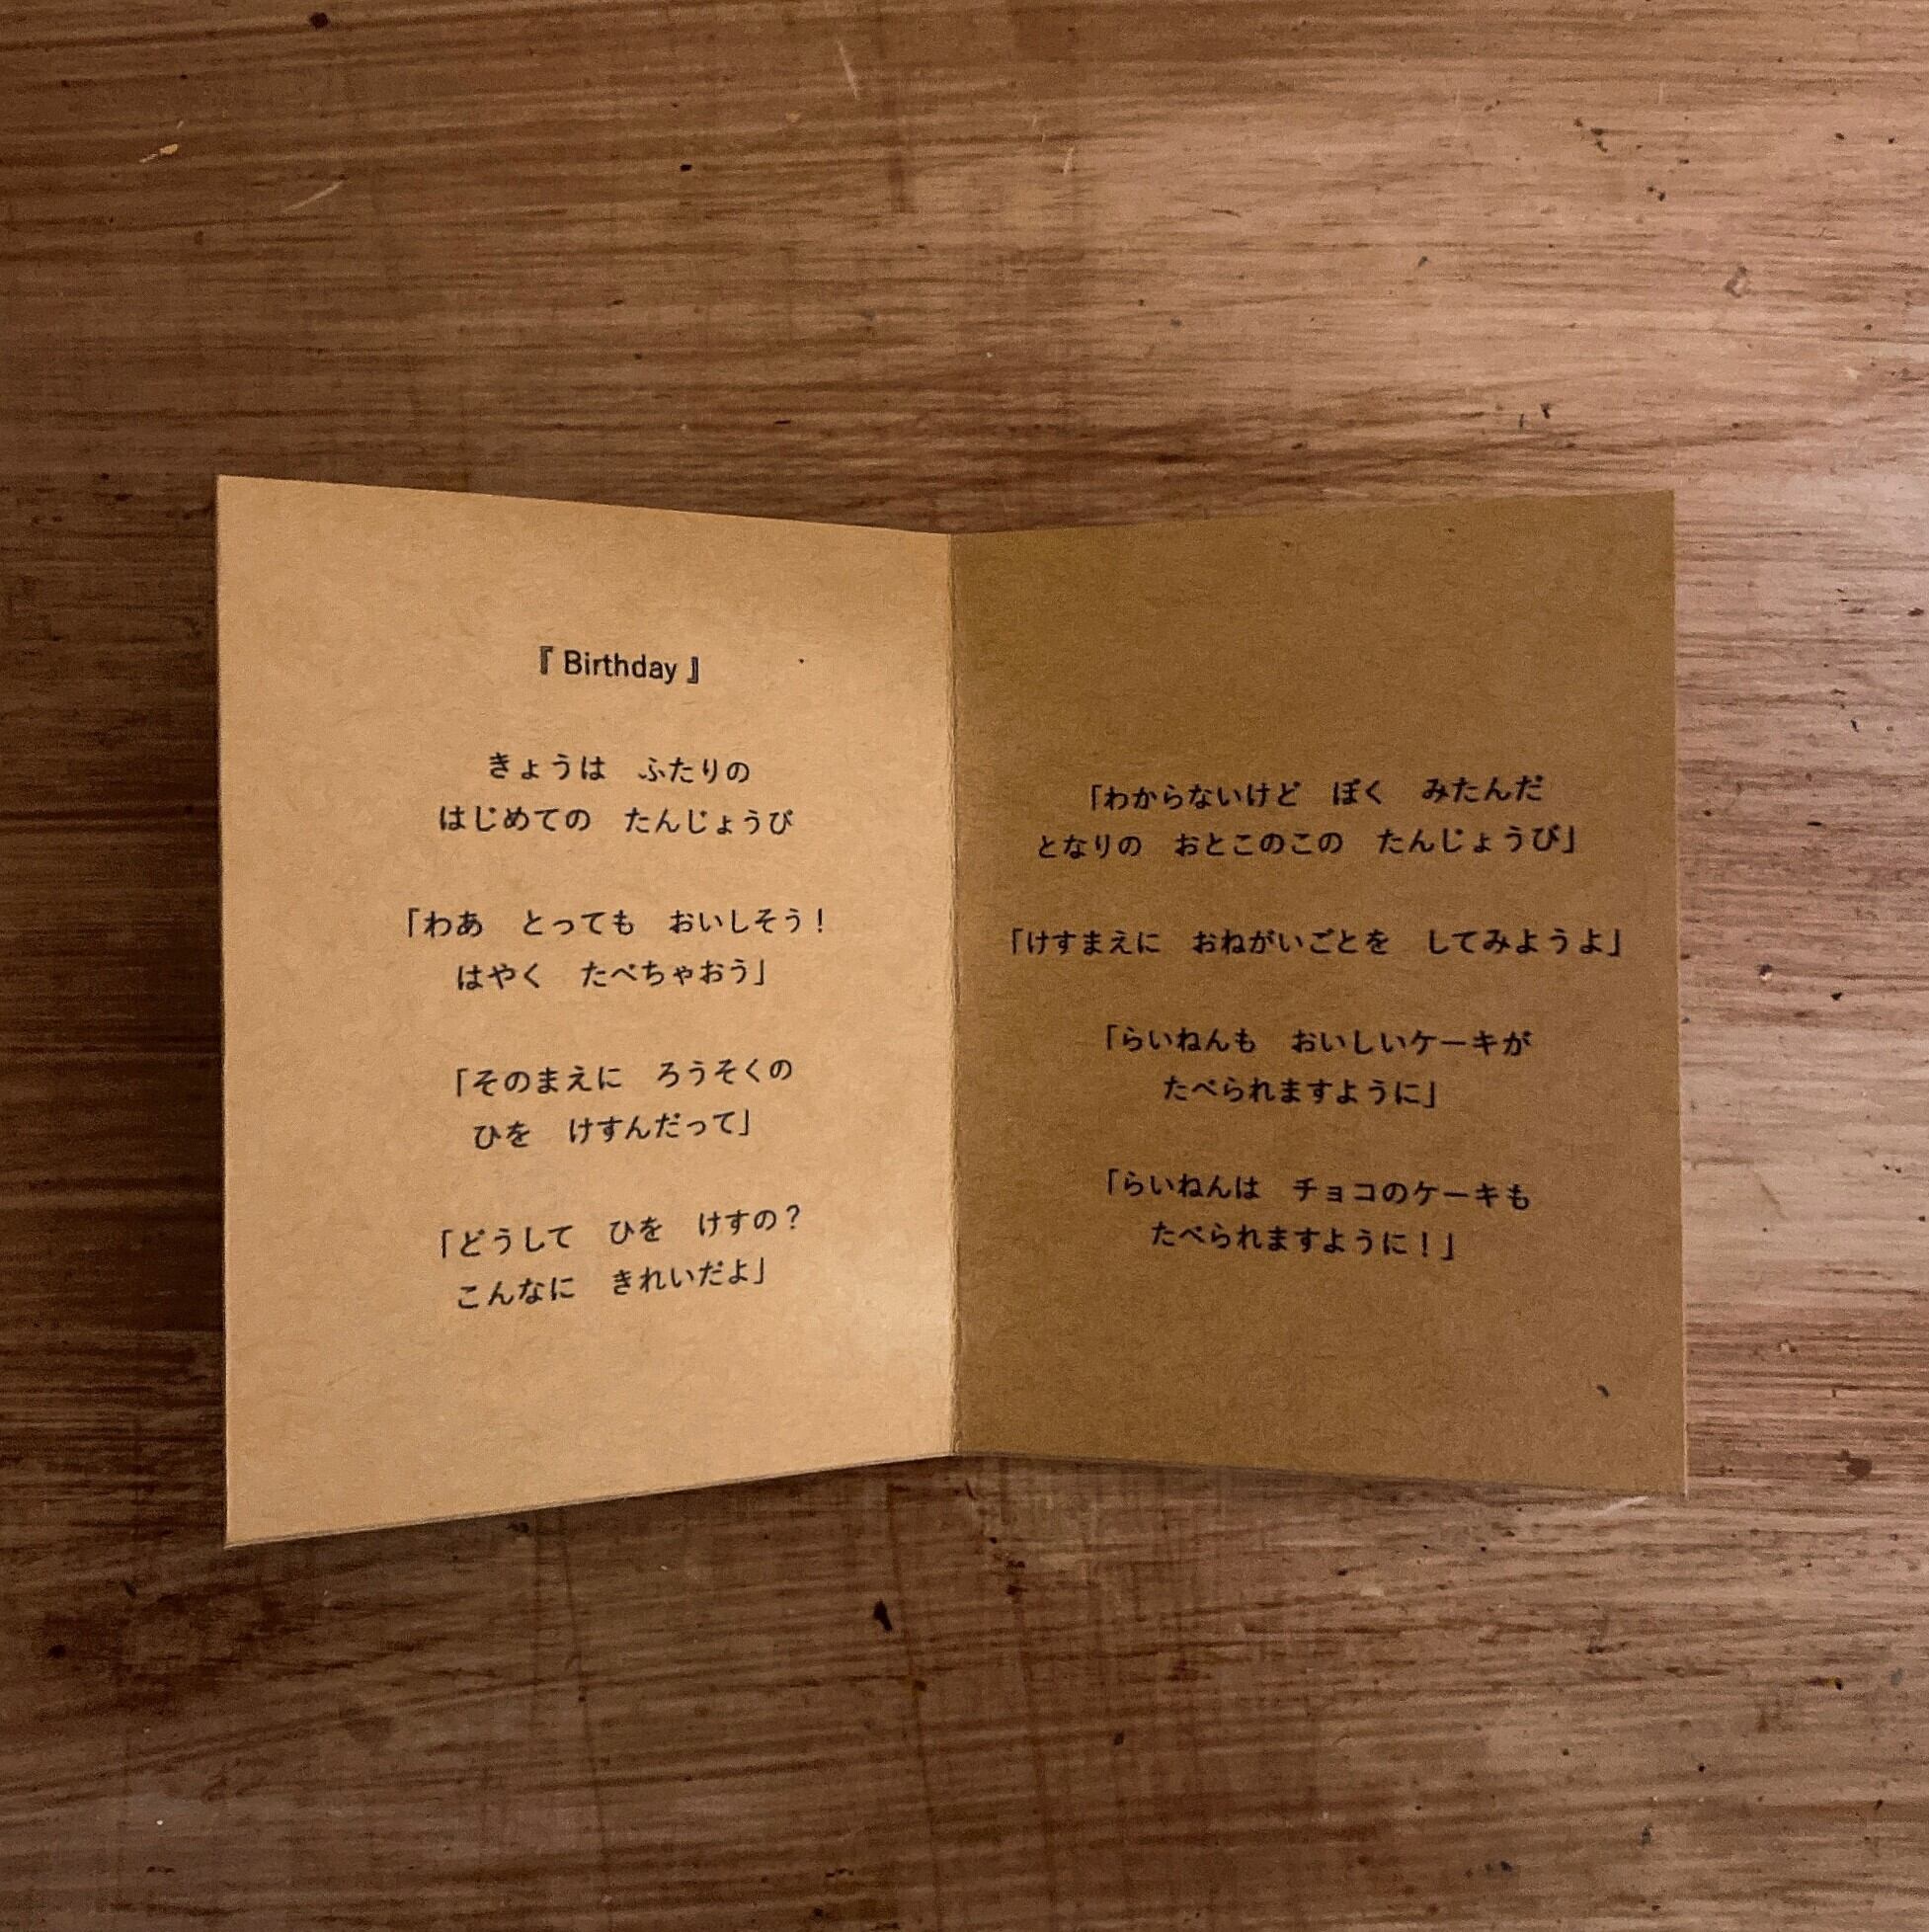 『 Birthday 』
きょうは　ふたりの
はじめての　たんじょうび
「わあ　とっても　おいしそう！
はやく　たべちゃおう」
「そのまえに　ろうそくの
ひを　けすんだって」
「どうして　ひを　けすの？
こんなに　きれいだよ」
「わからないけど　ぼく　みたんだ
となりの　おとこのこの　たんじょうび」
「けすまえに　おねがいごとを　してみようよ」
「らいねんも　おいしいケーキが
たべられますように」
「らいねんは　チョコのケーキも
たべられますように！」